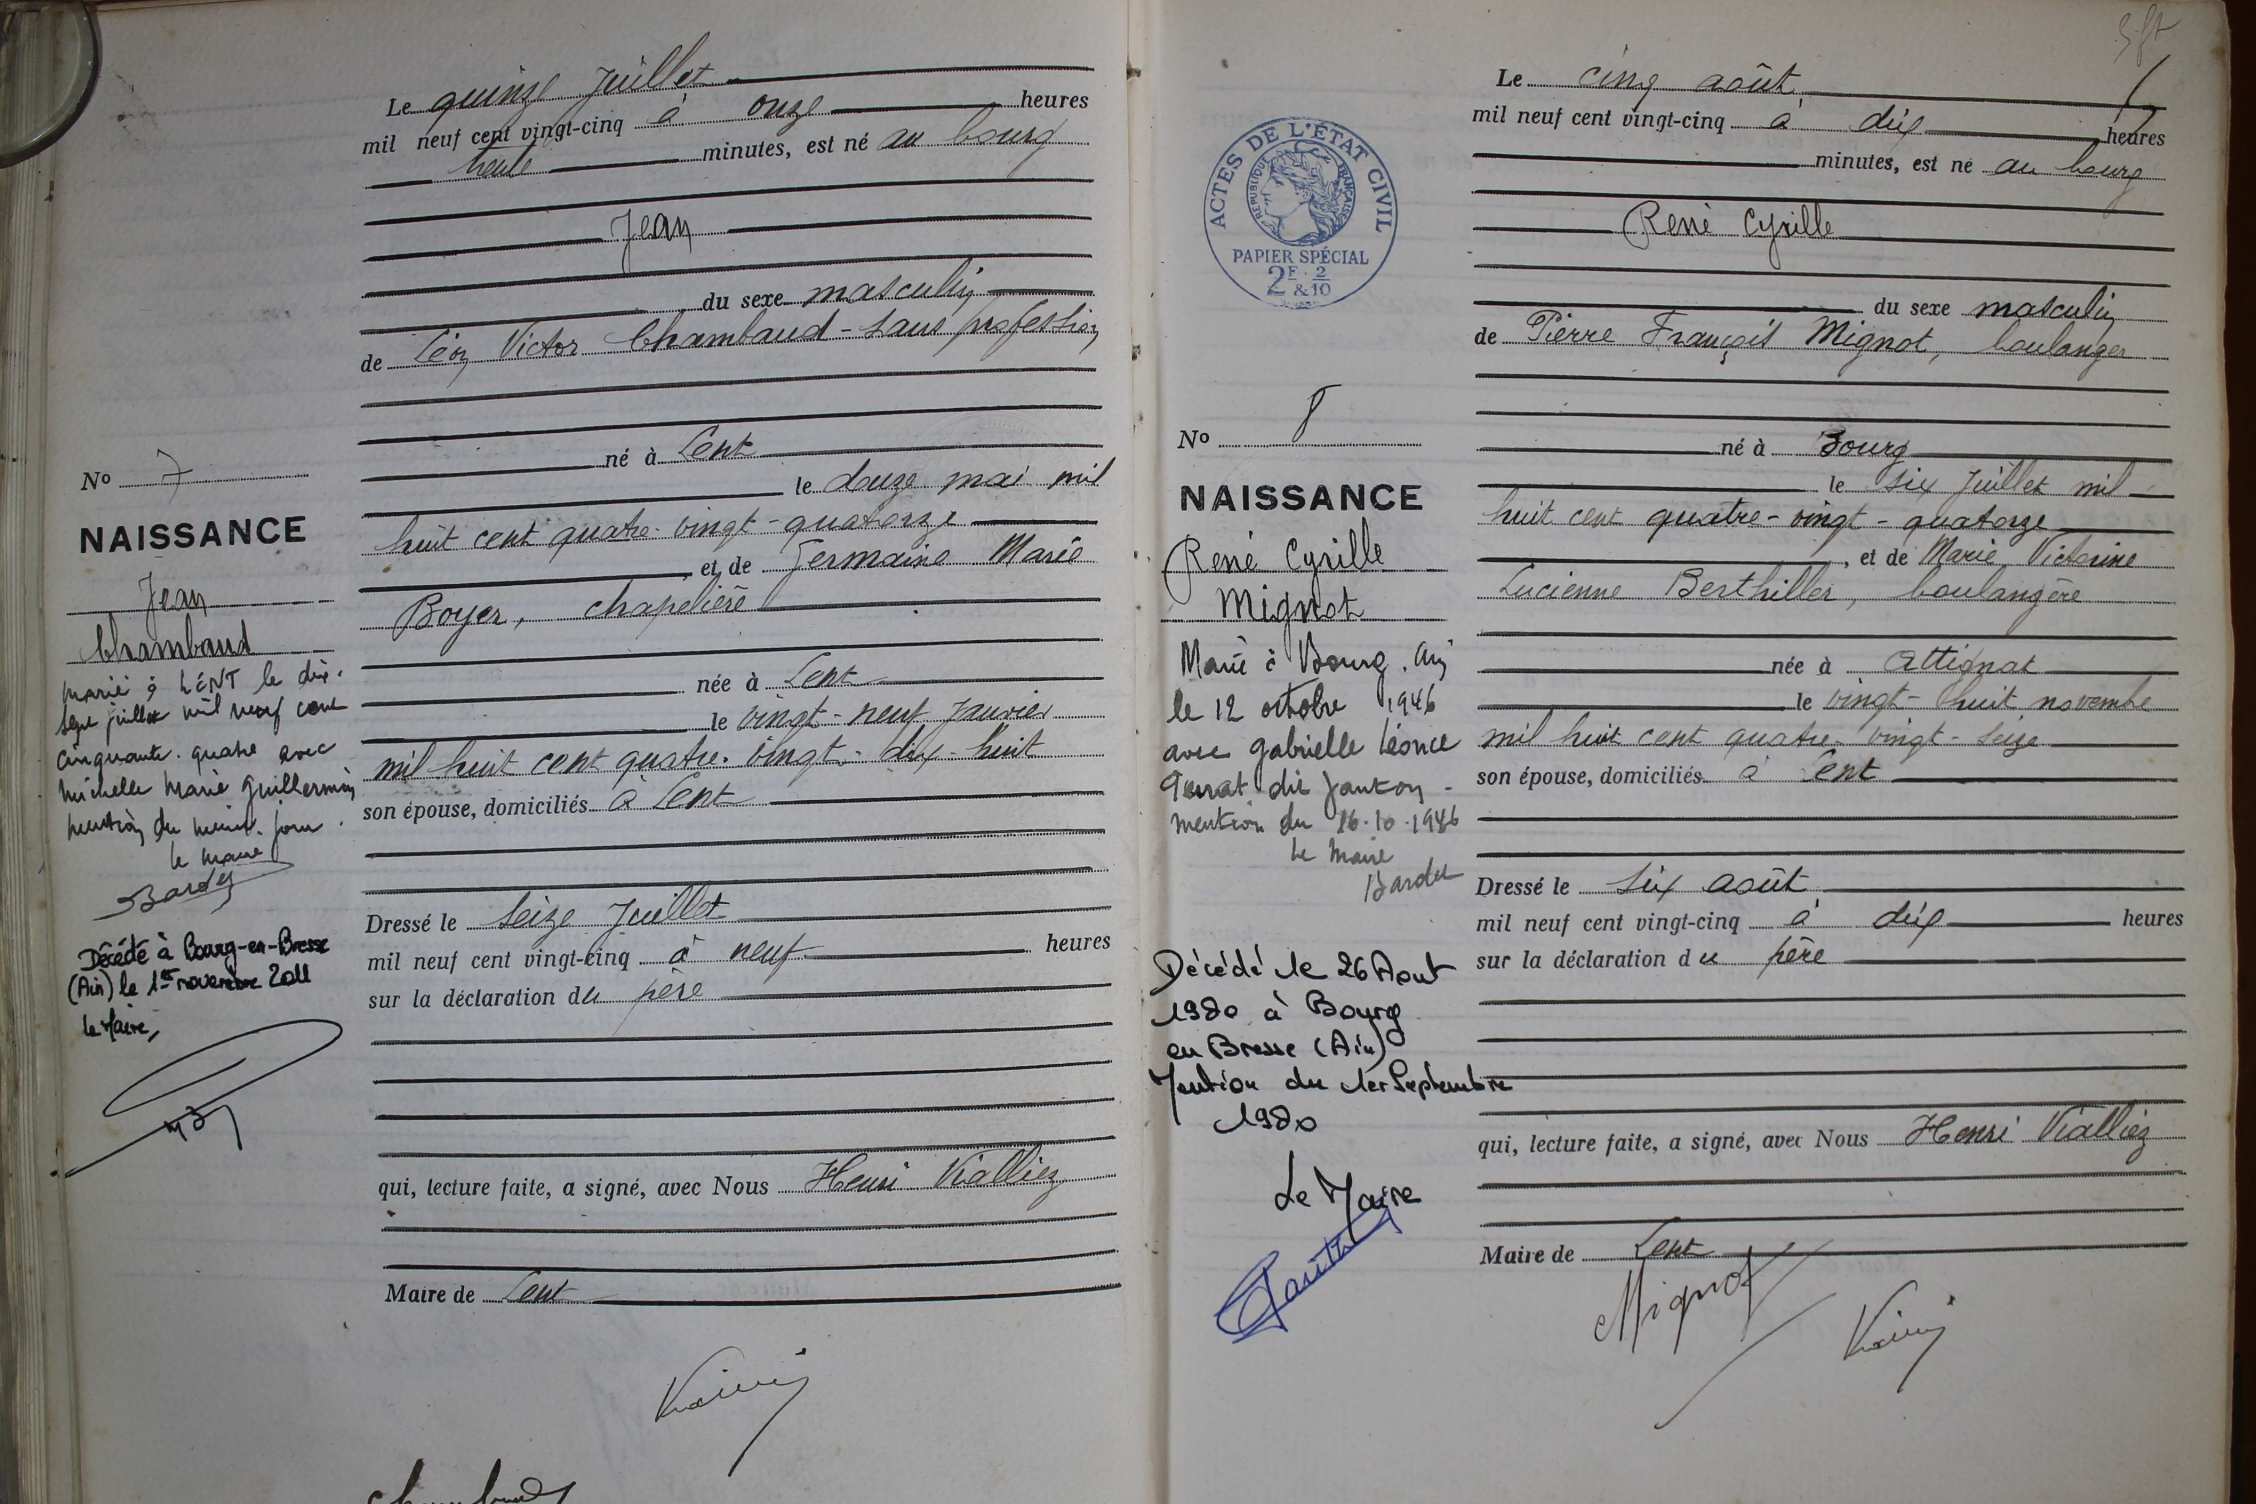 Le quinze Juillet
mil neuf cent vingt-cinq à onze heures
trente minutes, est né au bourg
Jean
du sexe masculin
de Léon Victor Chambaud - sans profession
né à Lent
le douze mai mil
huit cent quatre-vingt-quatorze
et de Germaine Marie
Boyer, chapelière
née à Lent
le vingt-neuf Janvier
mil huit cent quatre-vingt-dix-huit
son épouse, domiciliés à Lent
Dressé le seize Juillet
mil neuf cent vingt-cinq à neuf heures
sur la déclaration du père
qui, lecture faite, a signé, avec Nous Henri Vialliez
Maire de Lent
No 7
NAISSANCE
Jean
Chambaud
marié à LENT le dix-
sept juillet mil neuf cent
cinquante-quatre avec
Michelle Marie Guillermin
mention du même jour.
le Maire
Décédé à Bourg-en-Bresse
(Ain) le 1er novembre 2011
le Maire,
5 ft
Le cinq août
mil neuf cent vingt-cinq à dix heures
minutes, est né au bourg
René Cyrille
du sexe masculin
de Pierre François Mignot, boulanger
né à Bourg
le six Juillet mil
huit cent quatre-vingt-quatorze
, et de Marie Victorine
Lucienne Berthiller, boulangère
née à Attignat
le vingt-huit novembre
mil huit cent quatre-vingt-seize
son épouse, domiciliés à Lent
Dressé le six août
mil neuf cent vingt-cinq à dix heures
sur la déclaration du père
qui, lecture faite, a signé, avec Nous Henri Vialliez
Maire de Lent
Mignot
ACTES DE L'ÉTAT CIVIL
REPUBLIQUE FRANÇAISE
PAPIER SPÉCIAL
2F. 2
&10
No 8
NAISSANCE
René Cyrille
Mignot
Marié à Bourg. Ain
le 12 octobre 1946
avec Gabrielle Léonce
dit Janton -
mention du 16.10.1946
Le Maire
Décédé le 26 Aout
1980 à Bourg
en Bresse (Ain)
Mention du 1er Septembre
1980
Le Maire